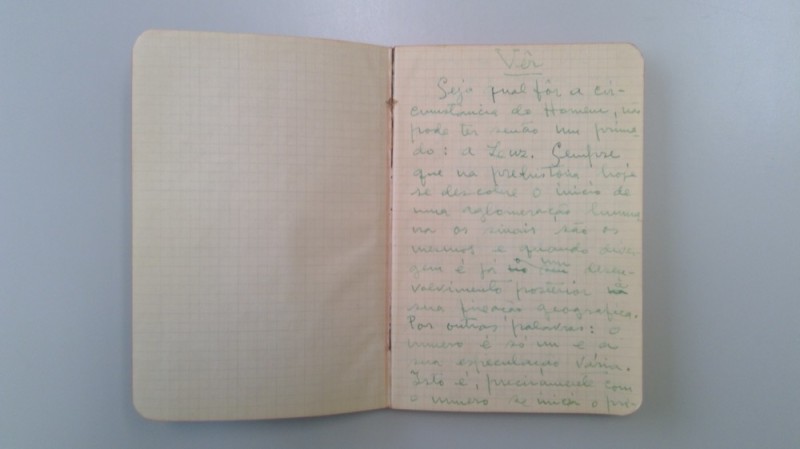 Vêr
Seja qual fôr a cir-
cunstancia do Homem, não
pode ter senão um
do: a Luz. Sempre
que na prehistoria hoje
se descobre o inicio de
uma aglomeração huma
na os sinais são os
mesmos e quando diver
gem é já no seu desen-
volvimento posterior
sua fixação geografica.
Por outras palavras: o
numero é só um e a
sua especulação vária.
Isto é, precisamente com
o numero se inicia o